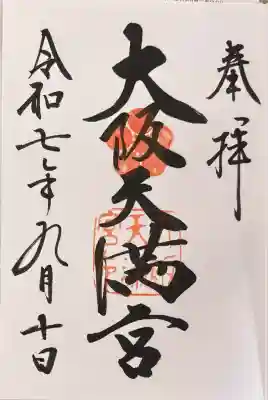 奉拝
大阪天満宮
令和七年九月十日